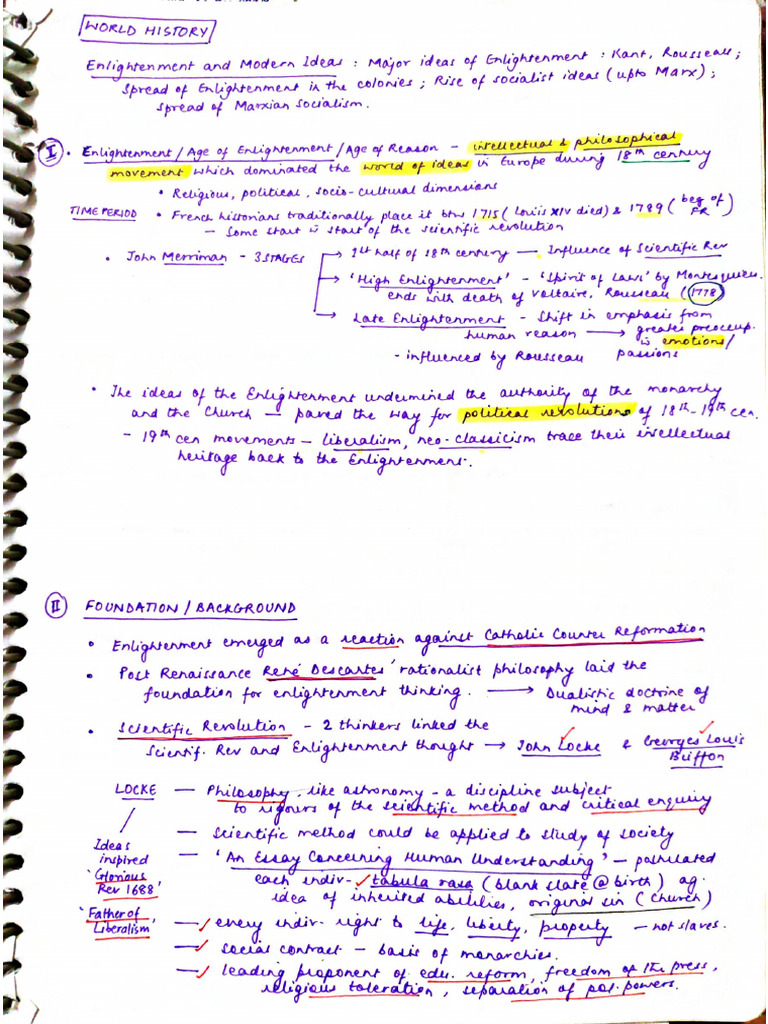 WORLD HISTORY
Enlightenment and Modern Ideas : Major ideas of Enlightenment : Kant, Rousseau ;
Spread of Enlightenment in the colonies ; Rise of socialist ideas (upto Marx) ;
spread of Marxian Socialism.
I • Enlightenment / Age of Enlightenment / Age of Reason – intellectual & philosophical
movement which dominated the world of ideas in Europe during 18th century
• Religious, political, socio-cultural dimensions
TIME PERIOD • French historians traditionally place it btw 1715 (Louis XIV died) & 1789 (beg of FR)
– Some start w start of the scientific revolution
• John Merriman – 3 STAGES → 1st half of 18th century — Influence of Scientific Rev
→ 'High Enlightenment' – 'Spirit of Laws' by Montesquieu
ends with death of Voltaire, Rousseau (1778)
→ Late Enlightenment – Shift in emphasis from
human reason → greater preoccup.
w emotions/
– influenced by Rousseau passions
• The ideas of the Enlightenment undermined the authority of the monarchy
and the Church – paved the way for political revolutions of 18th-19th cen.
– 19th cen movements – liberalism, neo-classicism trace their intellectual
heritage back to the Enlightenment.
II FOUNDATION / BACKGROUND
• Enlightenment emerged as a reaction against Catholic Counter Reformation
• Post Renaissance René Descartes' rationalist philosophy laid the
foundation for enlightenment thinking. → Dualistic doctrine of
mind & matter
• Scientific Revolution – 2 thinkers linked the
Scientif. Rev and Enlightenment thought → John Locke & Georges Louis
Buffon
LOCKE – Philosophy, like astronomy – a discipline subject
to rigours of the scientific method and critical enquiry
– Scientific method could be applied to study of society
Ideas
inspired
'Glorious
Rev 1688'
– 'An Essay Concering Human Understanding' – postulated
each indiv- tabula rasa (blank slate @ birth) ag.
idea of inherited abilities, original sin (Church)
'Father of
Liberalism'
– every indiv- right to life, liberty, property – not slaves.
– social contract – basis of monarchies.
– leading proponent of edu. reform, freedom of the press,
religious toleration, separation of pol. powers.